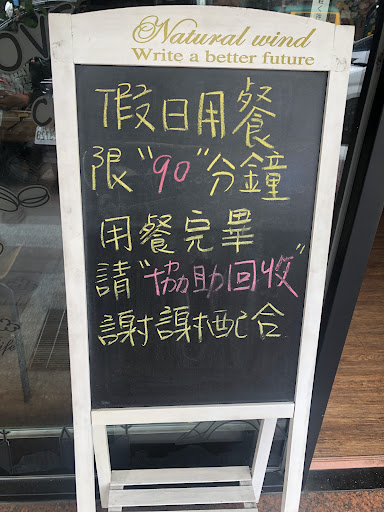 Natural wind
Write a better future
假日用餐
限"90"分鐘
用餐完畢
請"協助回收"
謝謝配合